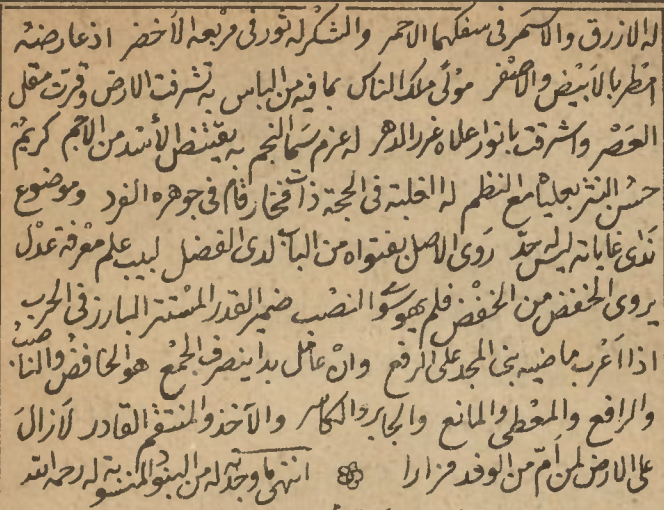 له الازرق والاسمر فى سفكهما الاحمر والشكر له نور فى مربعه الاخضر اذ عارضته
امطر بالابيض والاصفر مولى ملك الناس بما فيه من الباس به تشرفت الارض وقرت مقل
العصر واشرقت بانوار علاه غرر الدهر له عزم سما النجم به يقتنص الأسد من الاجم كريم
حسن النثر بعلياه مع النظم له الغلبة فى الحجة ذات فخار قام فى جوهره الفرد وموضوع
ندى غاياته ليس له حد روى الاصل بفتواه من الباب لدى الفضل لبيب علم معرفة عدل
يروى الخفض من الخفض فلم يهو سوى النصب ضمير القدر المستتر المبارز فى الحرب
اذا اعرب ماضيه بنى المجد على الرفع وان عامل بدا ينصرف الجمع هو الخافض والناصب
والرافع والمعطى والمانع والجابر والكاسر والآخذ والمنتقم القادر لازال
على الارض لمن أمّ من الوفد مزارا انتهى ما وجدته له من البنود المنسوبة له رحمه الله